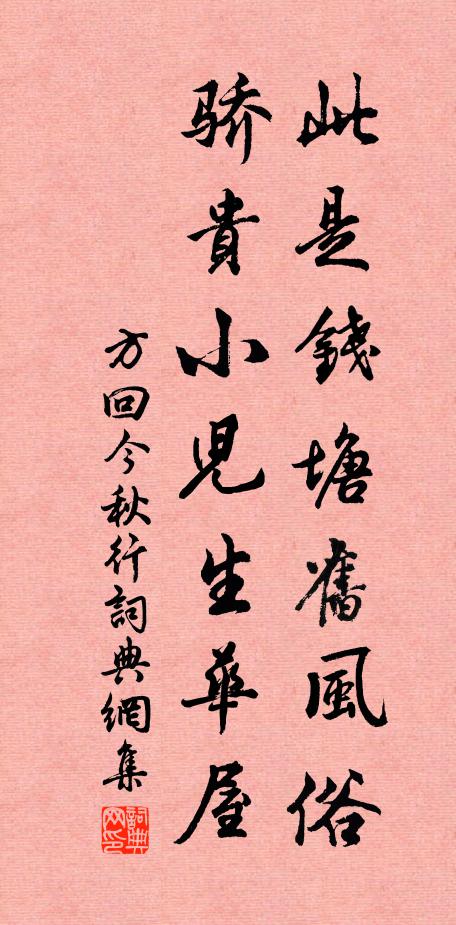 此是錢塘舊風俗
骄貴小児生華屋
方回今秋行詞典網集
詞典网印